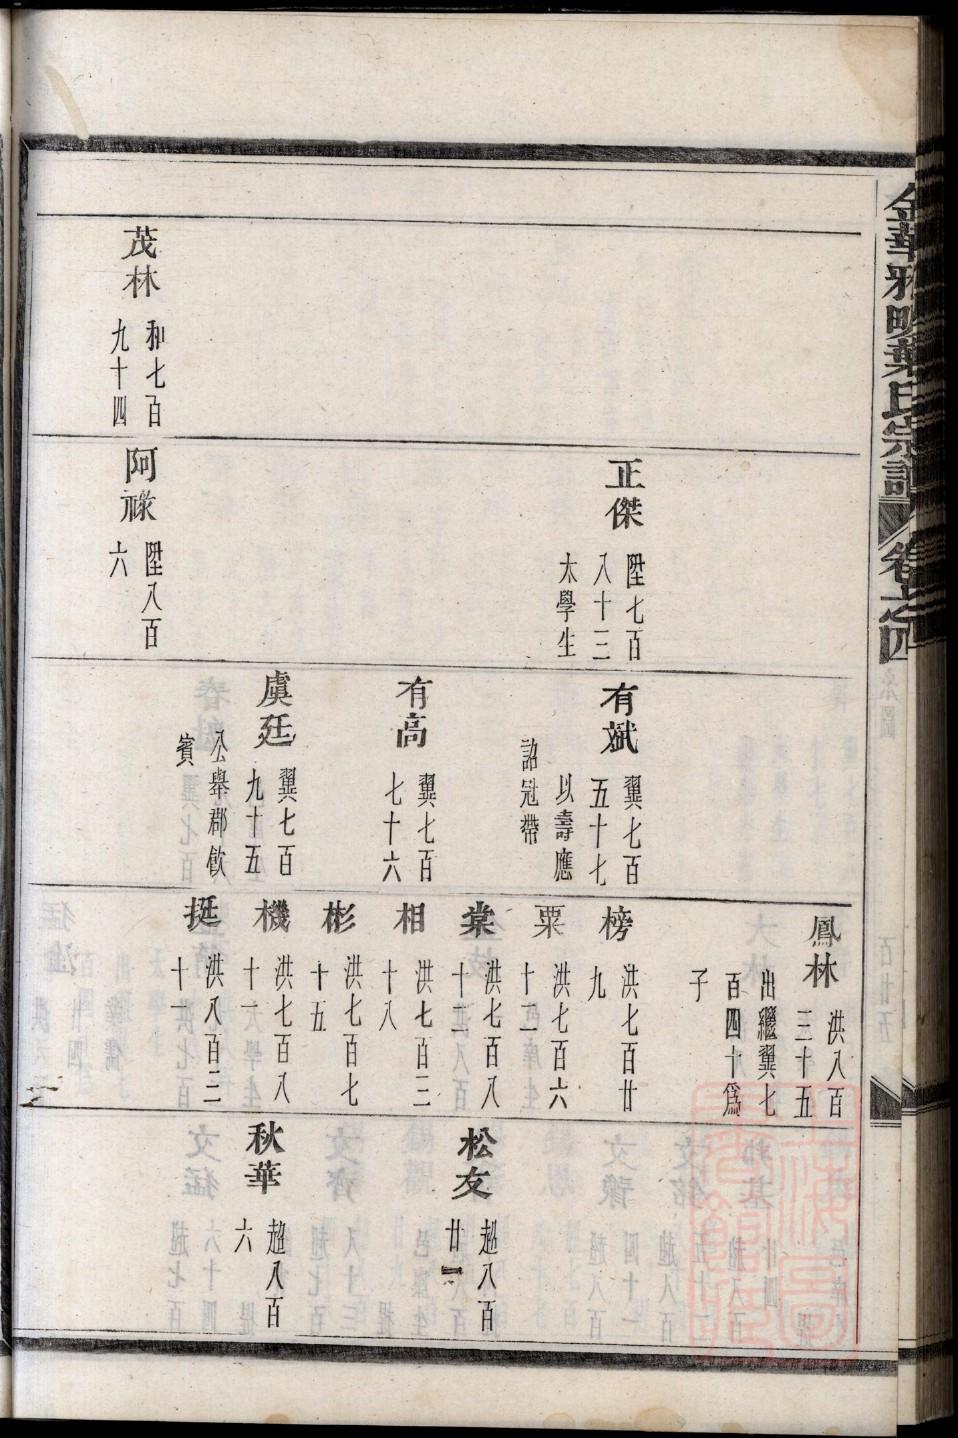 金華雅畈葉氏宗譜 卷之四
茂林 和七百
九十四
正傑 陞七百
八十三
太學生
阿祿 陞八百
六
有斌 翼七百
五十七
以壽應
詔冠帶
有高 翼七百
七十六
虞廷 翼七百
九十五
公舉郡飲
賓
鳳林 洪八百
三十五
出繼翼七
百四十爲
子
榜 洪七百廿
九
粟 洪七百六
十二
棠 洪七百八
十二
相 洪七百三
十八
彬 洪七百七
十五
機 洪七百八
十一
挺 洪八百二
十
松友 超八百
廿二
秋華 超八百
六